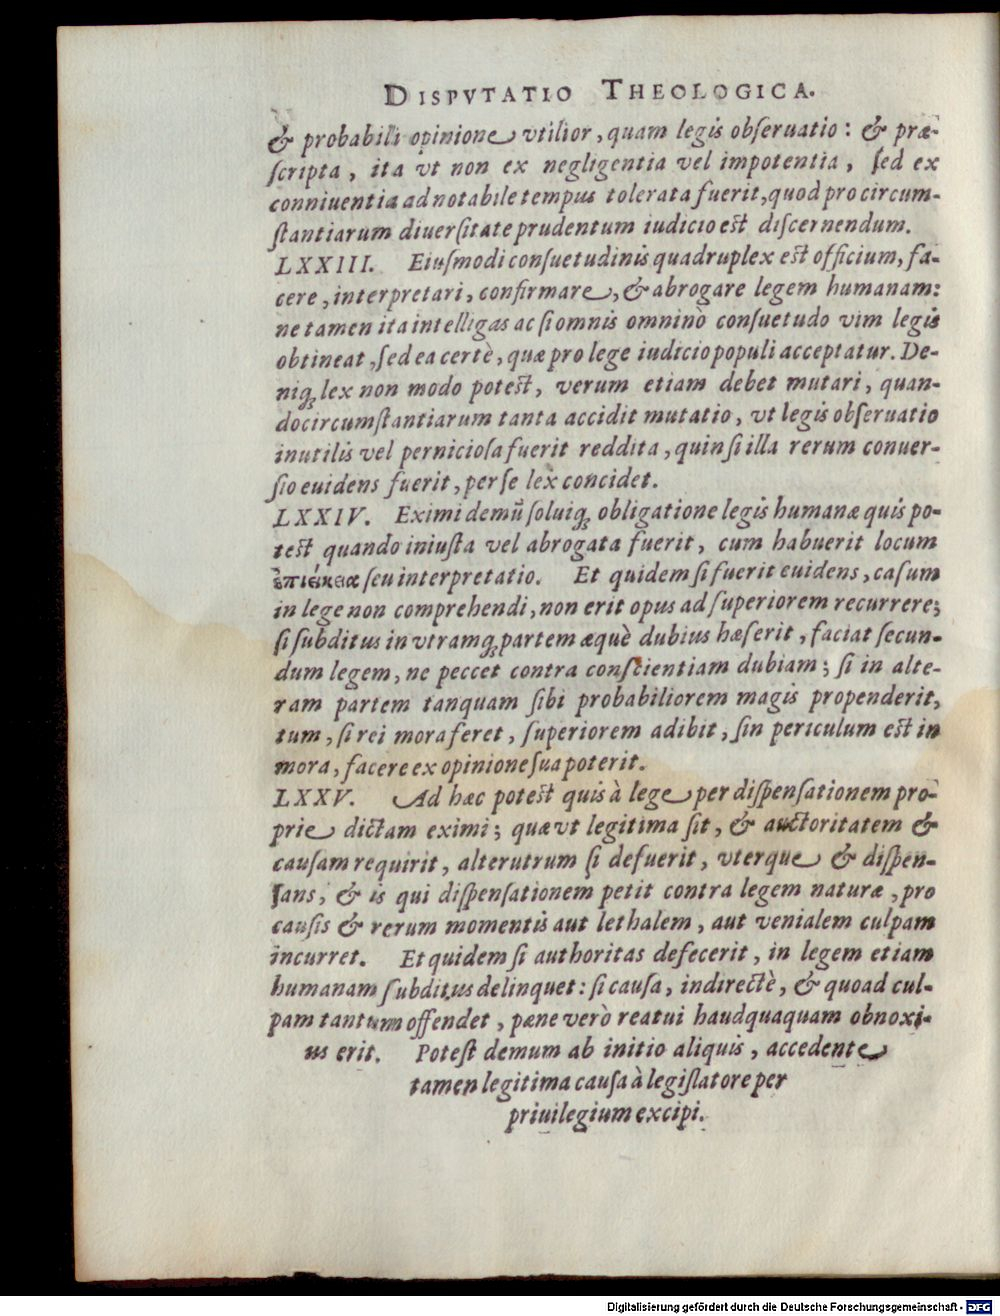 DISPVTATIO THEOLOGICA.
& probabili opinione vtilior, quam legis obſeruatio: & præ-
ſcripta, ita vt non ex negligentia vel impotentia, ſed ex
conniuentia ad notabile tempus tolerata fuerit, quod pro circum-
ſtantiarum diuerſitate prudentum iudicio eſt diſcernendum.
LXXIII. Eiuſmodi conſuetudinis quadruplex eſt officium, fa-
cere, interpretari, confirmare, & abrogare legem humanam:
ne tamen ita intelligas ac ſi omnis omninò conſuetudo vim legis
obtineat, ſed ea certè, quæ pro lege iudicio populi acceptatur. De-
niq; lex non modo poteſt, verum etiam debet mutari, quan-
do circumſtantiarum tanta accidit mutatio, vt legis obſeruatio
inutilis vel pernicioſa fuerit reddita, quin ſi illa rerum conuer-
ſio euidens fuerit, per ſe lex concidet.
LXXIV. Eximi demũ ſoluiq; obligatione legis humanæ quis po-
teſt quando iniuſta vel abrogata fuerit, cum habuerit locum
ἐπιείκεια ſeu interpretatio. Et quidem ſi fuerit euidens, caſum
in lege non comprehendi, non erit opus ad ſuperiorem recurrere;
ſi ſubditus in vtramq; partem æquè dubius hæſerit, faciat ſecun-
dum legem, ne peccet contra conſcientiam dubiam; ſi in alte-
ram partem tanquam ſibi probabiliorem magis propenderit,
tum, ſi rei mora feret, ſuperiorem adibit, ſin periculum eſt in
mora, facere ex opinione ſua poterit.
LXXV. Ad hæc poteſt quis à lege per diſpenſationem pro-
prie dictam eximi; quæ vt legitima ſit, & auctoritatem &
cauſam requirit, alterutrum ſi defuerit, vterque & diſpen-
ſans, & is qui diſpenſationem petit contra legem naturæ, pro
cauſis & rerum momentis aut lethalem, aut venialem culpam
incurret. Et quidem ſi authoritas defecerit, in legem etiam
humanam ſubditus delinquet: ſi cauſa, indirectè, & quoad cul-
pam tantum offendet, pæne verò reatui haudquaquam obnoxi-
us erit. Poteſt demum ab initio aliquis, accedente
tamen legitima cauſa à legiſlatore per
priuilegium excipi.
Digitalisierung gefördert durch die Deutsche Forschungsgemeinschaft - DFG